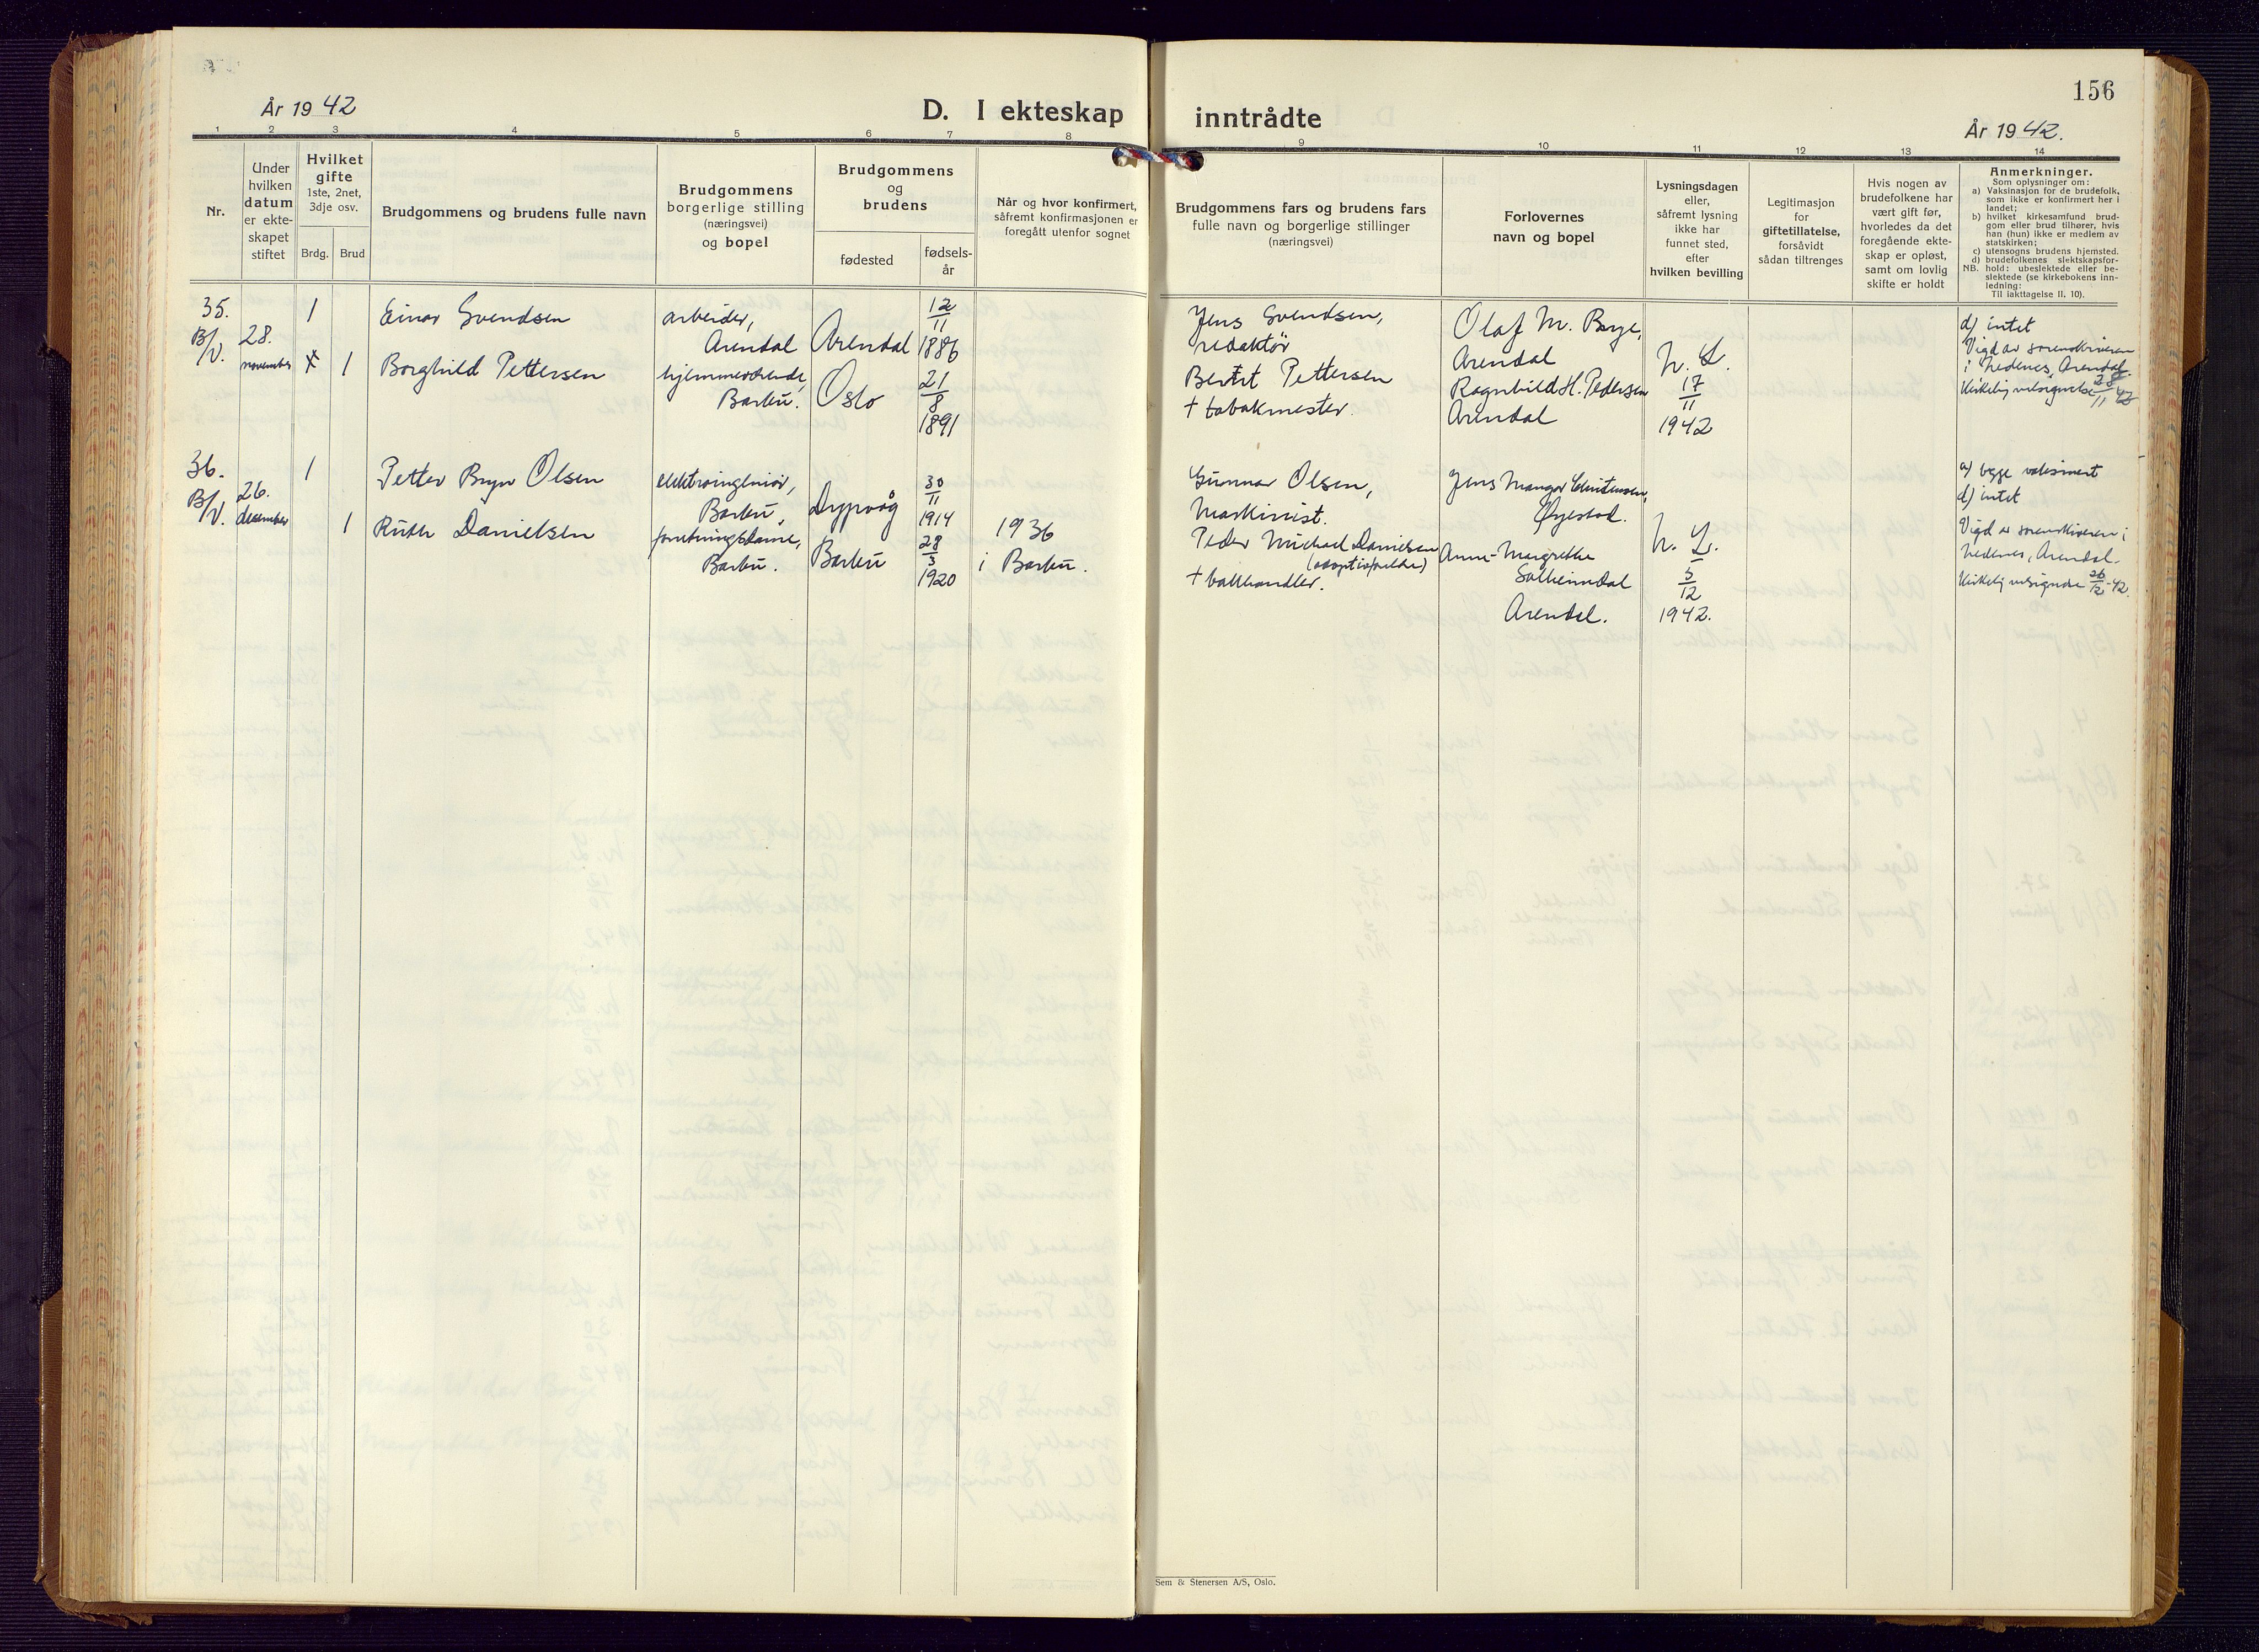 156
År 1942
D. I ekteskap inntrådte
År 1942.
1 2 3 4 5 6 7 8 9 10 11 12 13 14
Nr.
Under hvilken datum er ekteskapet stiftet
Hvilket gifte
1ste, 2net, 3dje osv.
Brdg. Brud
Brudgommens og brudens fulle navn
Brudgommens borgerlige stilling (næringsvei) og bopel
Brudgommens og brudens
fødested
fødsels-
år
Når og hvor konfirmert,
såfremt konfirmasjonen er
foregått utenfor sognet
Brudgommens fars og brudens fars
fulle navn og borgerlige stillinger
(næringsvei)
Forlovernes
navn og bopel
Lysningsdagen
eller,
såfremt lysning
ikke har
funnet sted,
efter
hvilken bevilling
Legitimasjon
for
giftetillatelse,
forsåvidt
sådan tiltrenges
Hvis nogen av
brudefolkene har
vært gift før,
hvorledes da det
foregående ekte-
skap er opløst,
samt om lovlig
skifte er holdt
Anmerkninger.
Som oplysninger om:
a) Vaksinasjon for de brudefolk,
som ikke er konfirmert her i
landet;
b) hvilket kirkesamfund brud-
gom eller brud tilhører, hvis
han (hun) ikke er medlem av
statskirken;
c) utensogns brudens hjemsted.
d) brudefolkenes slektskapsfor-
NB. hold: ubeslektede eller be-
slektede (se kirkebokens inn-
ledning:
Til iakttagelse II. 10).
35.
B/V.
28.
november
1
Einar Svendsen
arbeider,
Arendal
Arendal
12/11
1886
Jens Svendsen,
redaktør
Olaf M. Bøye,
Arendal
1
Borghild Pettersen
hjemmeværende,
Barbu.
Oslo
21/8
1891
Bernt Pettersen
+ tobakmester.
Ragnhild H. Pedersen
Arendal
N. L.
17/11
1942
d) intet
Vigd av sorenskriveren
i Nedenes, Arendal.
Kirkelig velsignelse 28/11 42
36.
B/V.
26.
desember
1
Petter Bryn Olsen
elektroingeniør,
Barbu,
Dypvåg
30/11
1914
Gunnar Olsen,
Maskinist.
Jens Mangor Christensen,
Øyestad.
1
Ruth Danielsen
forretningsdame,
Barbu.
Barbu
28/3
1920
1936
i Barbu.
Peder Michael Danielsen
(adoptivforeldre)
Anne-Margrethe
Solheimdal
Arendal.
N. L.
5/12
1942.
a) begge vaksinert
d) intet
Vigd av sorenskriveren i
Nedenes, Arendal.
Kirkelig velsignelse 26/12-42.
Sem & Stenersen A/S, Oslo.